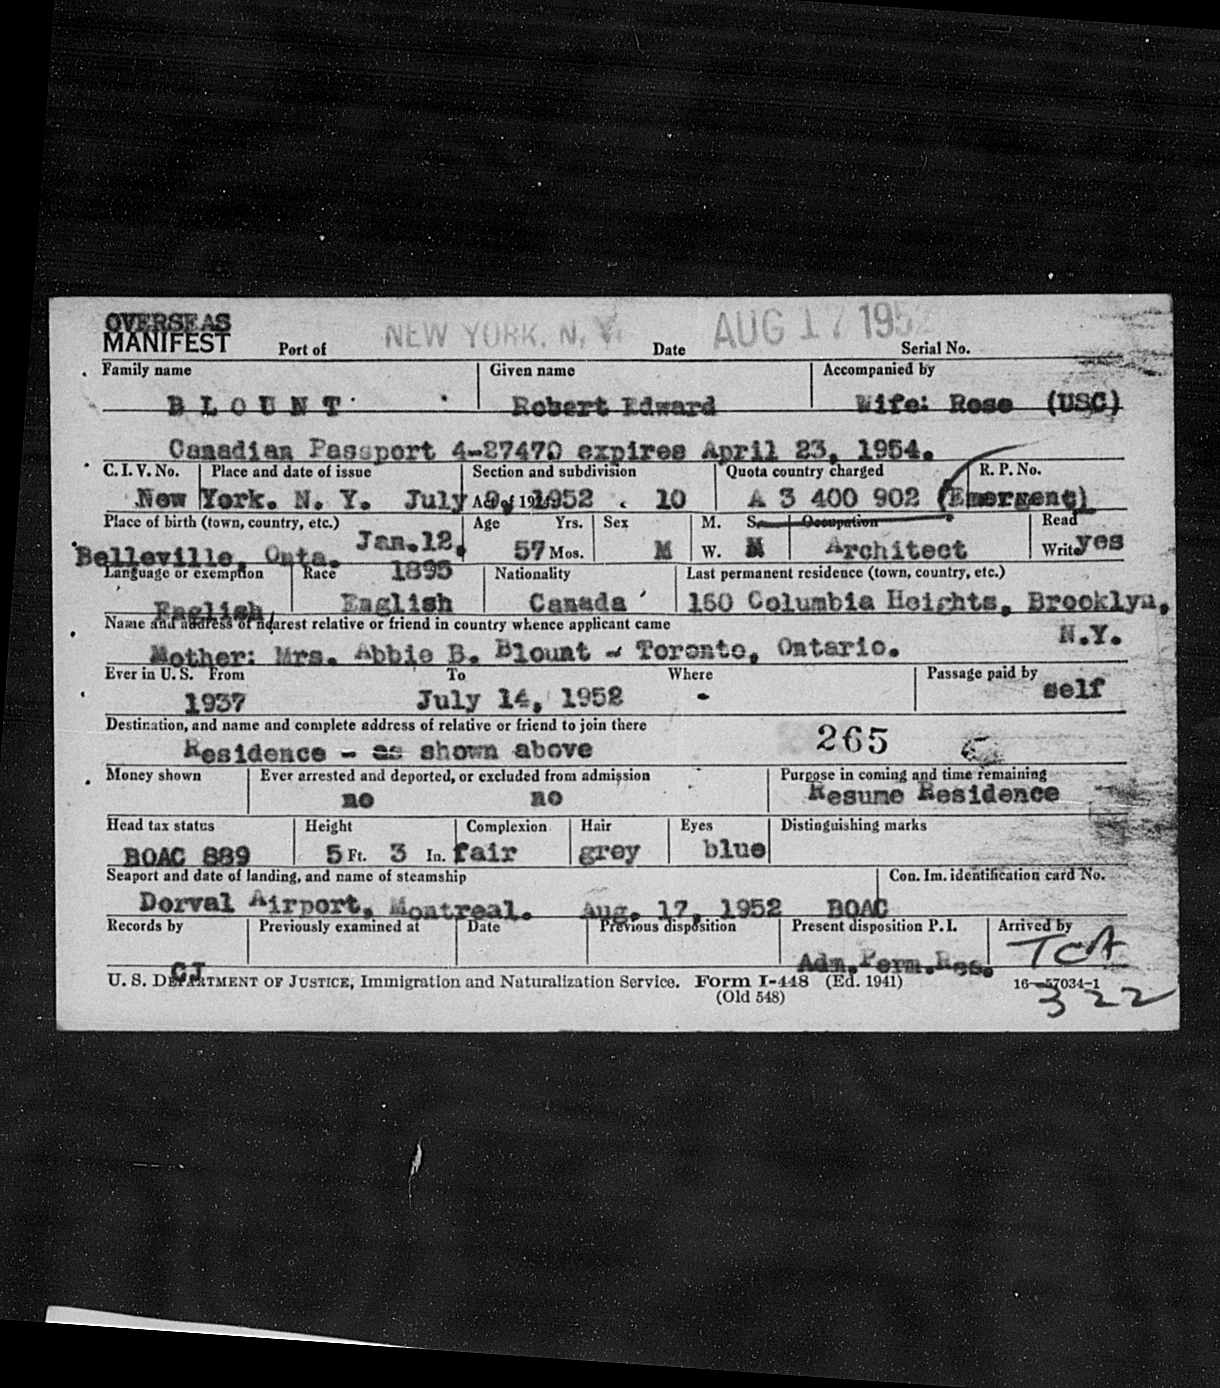 OVERSEAS
MANIFEST Port of NEW YORK, N. Y. Date AUG 17 1952 Serial No.
Family name Given name Accompanied by
B L O U N T Robert Edward Wife: Rose (USC)
Canadian Passport 4-27470 expires April 23, 1954.
C. I. V. No. Place and date of issue Section and subdivision Quota country charged R. P. No.
New York. N. Y. July 9, 1952 Act of 1924 10 A 3 400 902 (Emergent)
Place of birth (town, country, etc.) Age Yrs. Sex M. S. Occupation Read
Belleville, Onta. Jan.12, 57 Mos. M W. M Architect Write yes
Language or exemption Race 1895 Nationality Last permanent residence (town, country, etc.)
English, English Canada 160 Columbia Heights, Brooklyn,
Name and address of nearest relative or friend in country whence applicant came N.Y.
Mother: Mrs. Abbie B. Blount - Toronto, Ontario.
Ever in U. S. From To Where Passage paid by
1937 July 14, 1952 - self
Destination, and name and complete address of relative or friend to join there
Residence - as shown above 265
Money shown Ever arrested and deported, or excluded from admission Purpose in coming and time remaining
no no Resume Residence
Head tax status Height Complexion Hair Eyes Distinguishing marks
BOAC 889 5 Ft. 3 In. fair grey blue
Seaport and date of landing, and name of steamship Con. Im. identification card No.
Dorval Airport, Montreal. Aug. 17, 1952 BOAC
Records by Previously examined at Date Previous disposition Present disposition P. I. Arrived by
CJ Adm.Perm.Res. TCA
U. S. DEPARTMENT OF JUSTICE, Immigration and Naturalization Service. Form I-448 (Ed. 1941) 16—57034-1
(Old 548) 322